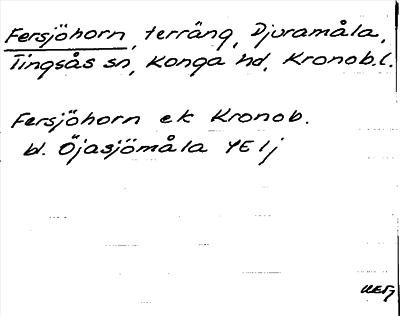 Fersjöhorn, terräng, Djuramåla,
Tingsås sn, Konga hd, Kronob.l.
Fersjöhorn ek Kronob.
bl. Öjasjömåla YE lj